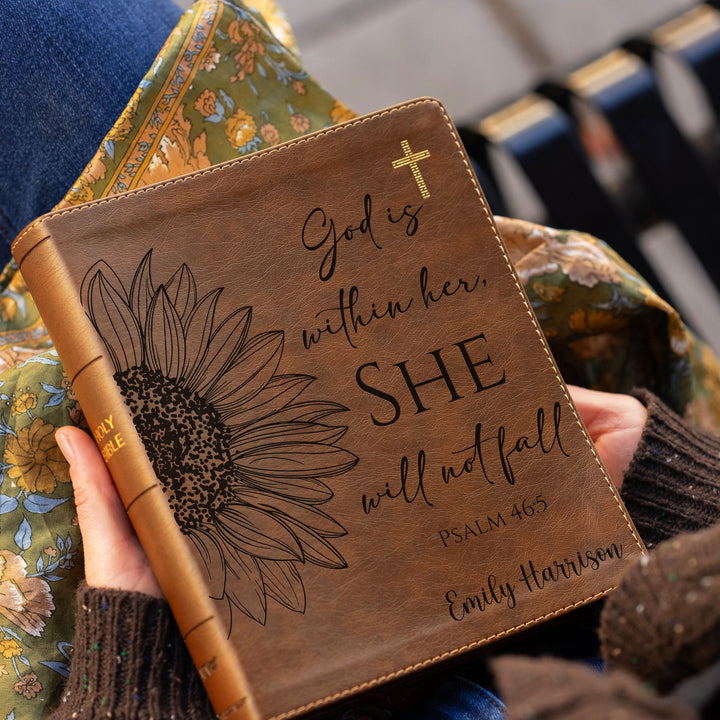 God is
within her,
SHE
will not fall
PSALM 46:5
Emily Harrison
HOLY
BIBLE